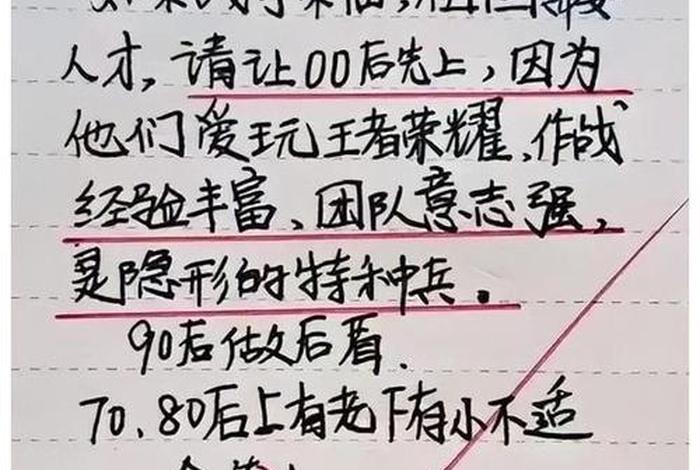 人才,请让00后先上,因为
他们爱玩王者荣耀、作战
经验丰富、团队意志强,
是隐形的特种兵。
90后做后盾.
70、80后上有老下有小不适